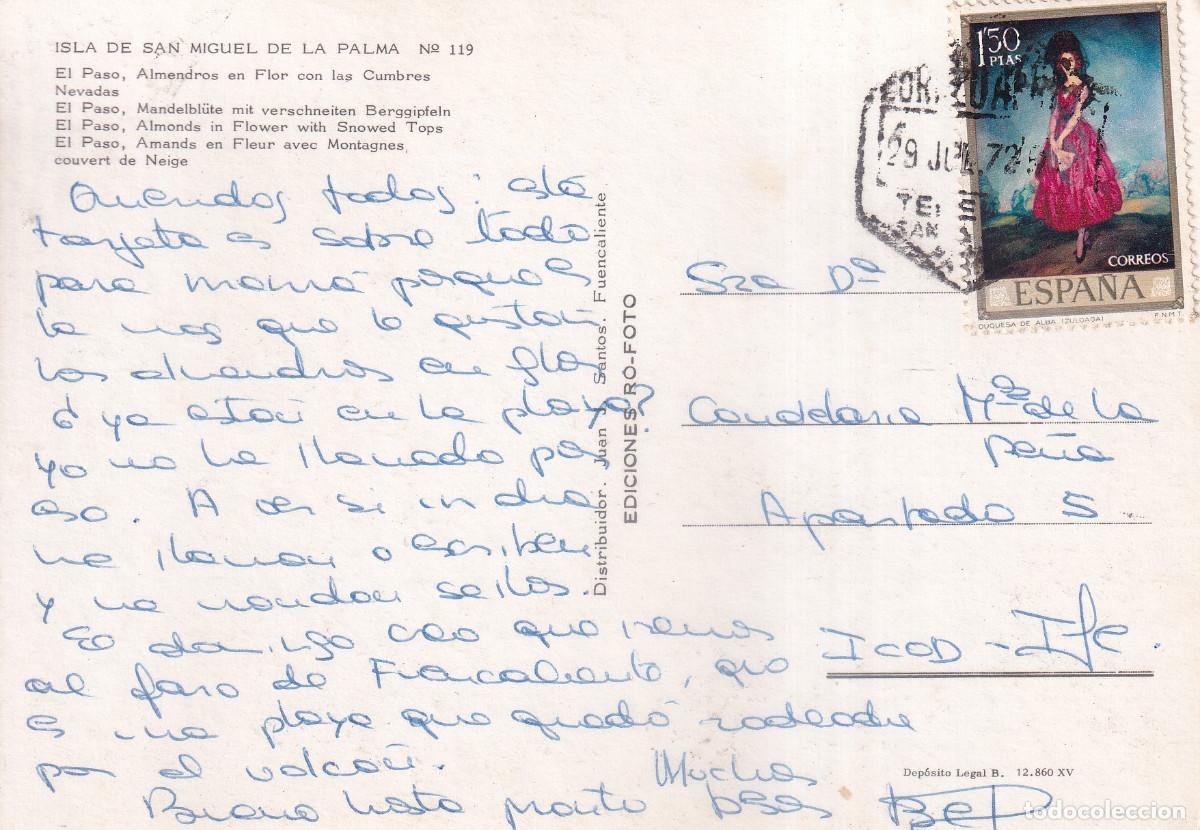 ISLA DE SAN MIGUEL DE LA PALMA Nº 119
El Paso, Almendros en Flor con las Cumbres
Nevadas
El Paso, Mandelblüte mit verschneiten Berggipfeln
El Paso, Almonds in Flower with Snowed Tops
El Paso, Amands en Fleur avec Montagnes,
couvert de Neige
Queridos todos: está
tarjeta es sobre todo
para mamá porque es
la mas que le gustan
los almendros en flor
¿ ya están en la playa?
yo no he llamado por
eso. A ver si un dia
me llaman o escriben
y me mandan sellos.
El domingo creo que iremos
al faro de Fuencaliente, que
es una playa que quedó rodeada
por el volcán.
Bueno hasta pronto
Muchos
besos
Bep
Distribuidor. Juan J. Santos. Fuencaliente
EDICIONES RO-FOTO
1'50
PTAS
CORREOS
ESPAÑA
DUQUESA DE ALBA (ZULOAGA)
F.N.M.T.
29 JUL. 72
Sra Dª
Candelaria Mª de la
Peña
Apartado 5
ICOD - Tfe.
Depósito Legal B. 12.860 XV
todocoleccion